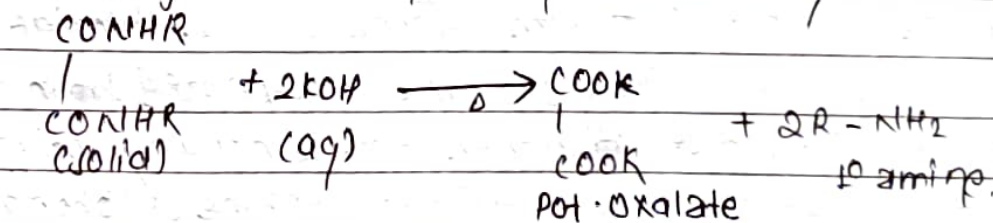 CONHR
|
CONHR
(solid)
+ 2KOH
(aq)
Δ
COOK
|
COOK
Pot. Oxalate
+ 2R - NH2
1° amine.